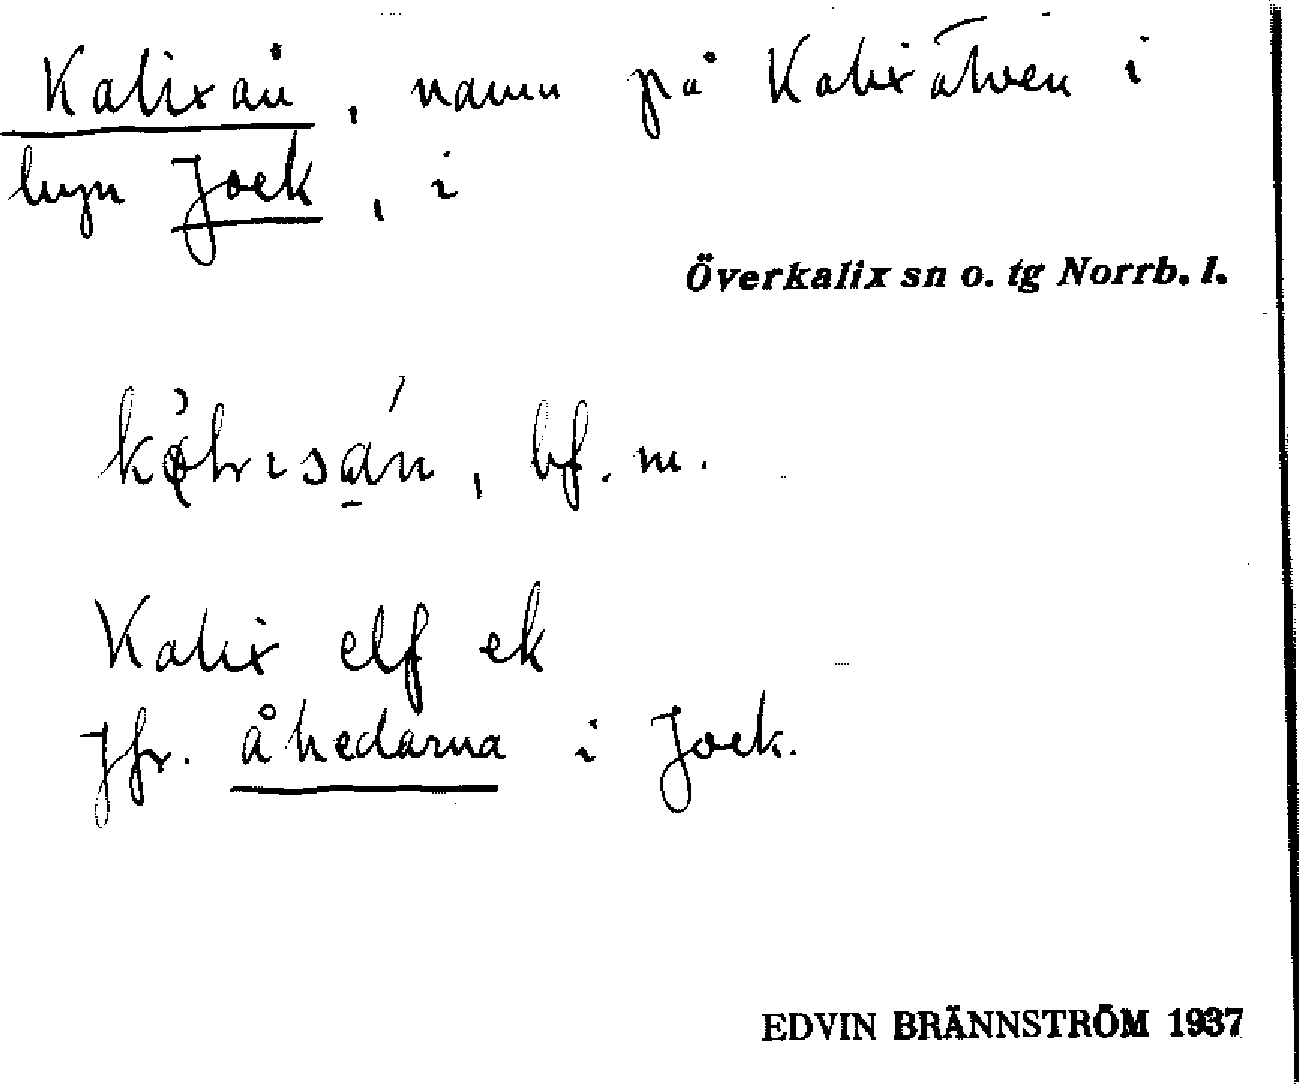 Kalixån, namn på Kalixälven i
byn Jock, i
Överkalix sn o. tg Norrb. l.
bf. m.
Kalix elf ek
Jfr. åhedarna i Jock.
EDVIN BRÄNNSTRÖM 1937